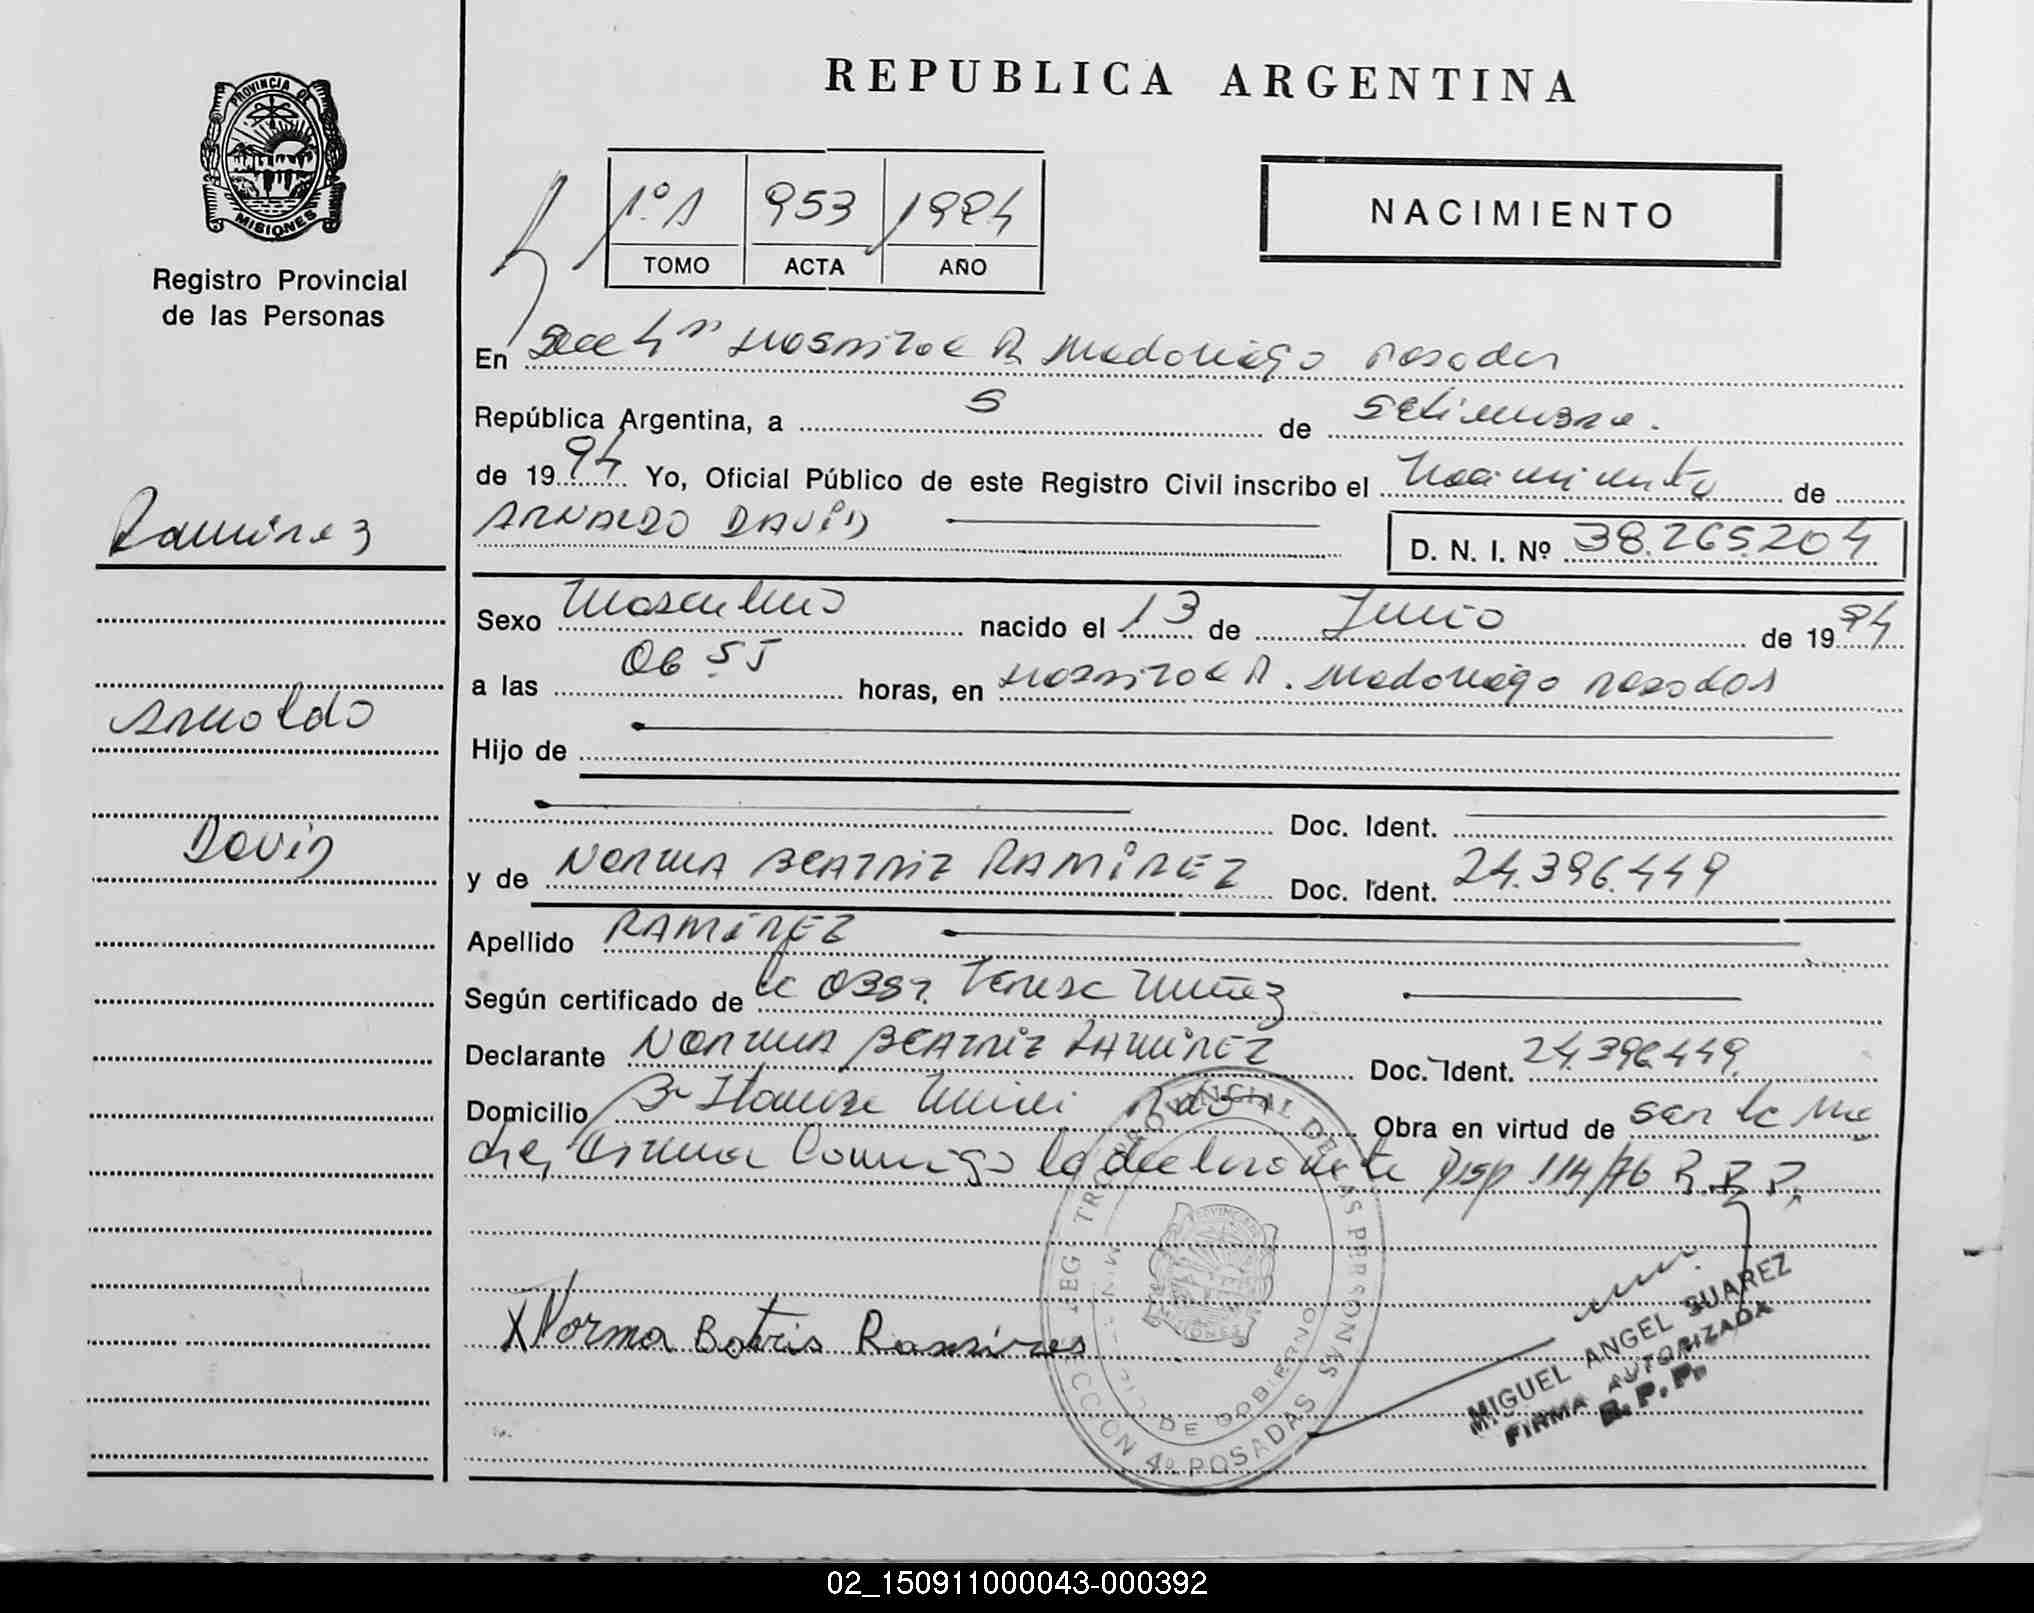 REPUBLICA ARGENTINA
PROVINCIA DE
MISIONES
Registro Provincial
de las Personas
1º A 953 1994
TOMO ACTA AÑO
NACIMIENTO
En Secc 4ª Hospital R Madariaga Posadas
República Argentina, a 5 de Setiembre.
de 1994 Yo, Oficial Público de este Registro Civil inscribo el Nacimiento de
ARNALDO DAVID
D. N. I. Nº 38.265.204
Ramirez
Arnaldo
David
Sexo Masculino nacido el 13 de Junio de 1994
a las 06.55 horas, en Hospital R. Madariaga Posadas
Hijo de
Doc. Ident.
y de NORMA BEATRIZ RAMIREZ Doc. Ident. 24.396.449
Apellido RAMIREZ
Según certificado de la Obst. Teresa Nuñez
Declarante NORMA BEATRIZ RAMIREZ Doc. Ident. 24.396.449
Domicilio Bº Itaembe Mini Pdas Obra en virtud de ser la ma
dre, Firma Conmigo la declarante Disp 114/76 R.P.P.
X Norma Batris Ramires
REGISTRO PROVINCIAL DE LAS PERSONAS
DE GOBIERNO
SECCION 4º POSADAS
PROVINCIA DE
MISIONES
MIGUEL ANGEL SUAREZ
FIRMA AUTORIZADA
R.P.P.
02_150911000043-000392